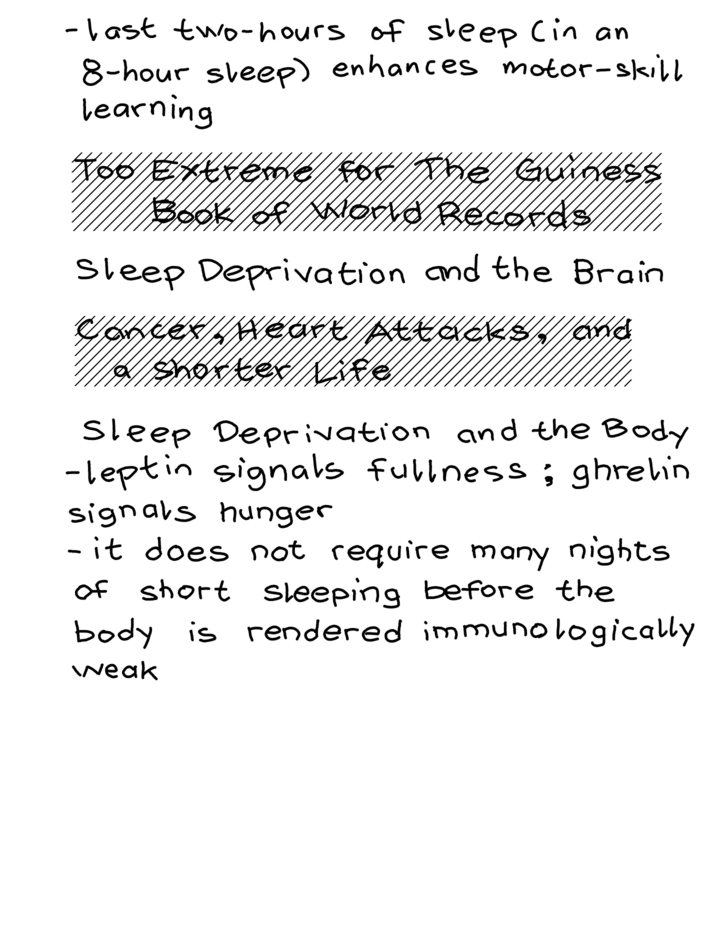 -last two-hours of sleep (in an
8-hour sleep) enhances motor-skill
learning
Too Extreme for The Guiness
Book of World Records
Sleep Deprivation and the Brain
Cancer, Heart Attacks, and
a Shorter Life
Sleep Deprivation and the Body
-leptin signals fullness; ghrelin
signals hunger
-it does not require many nights
of short sleeping before the
body is rendered immunologically
weak